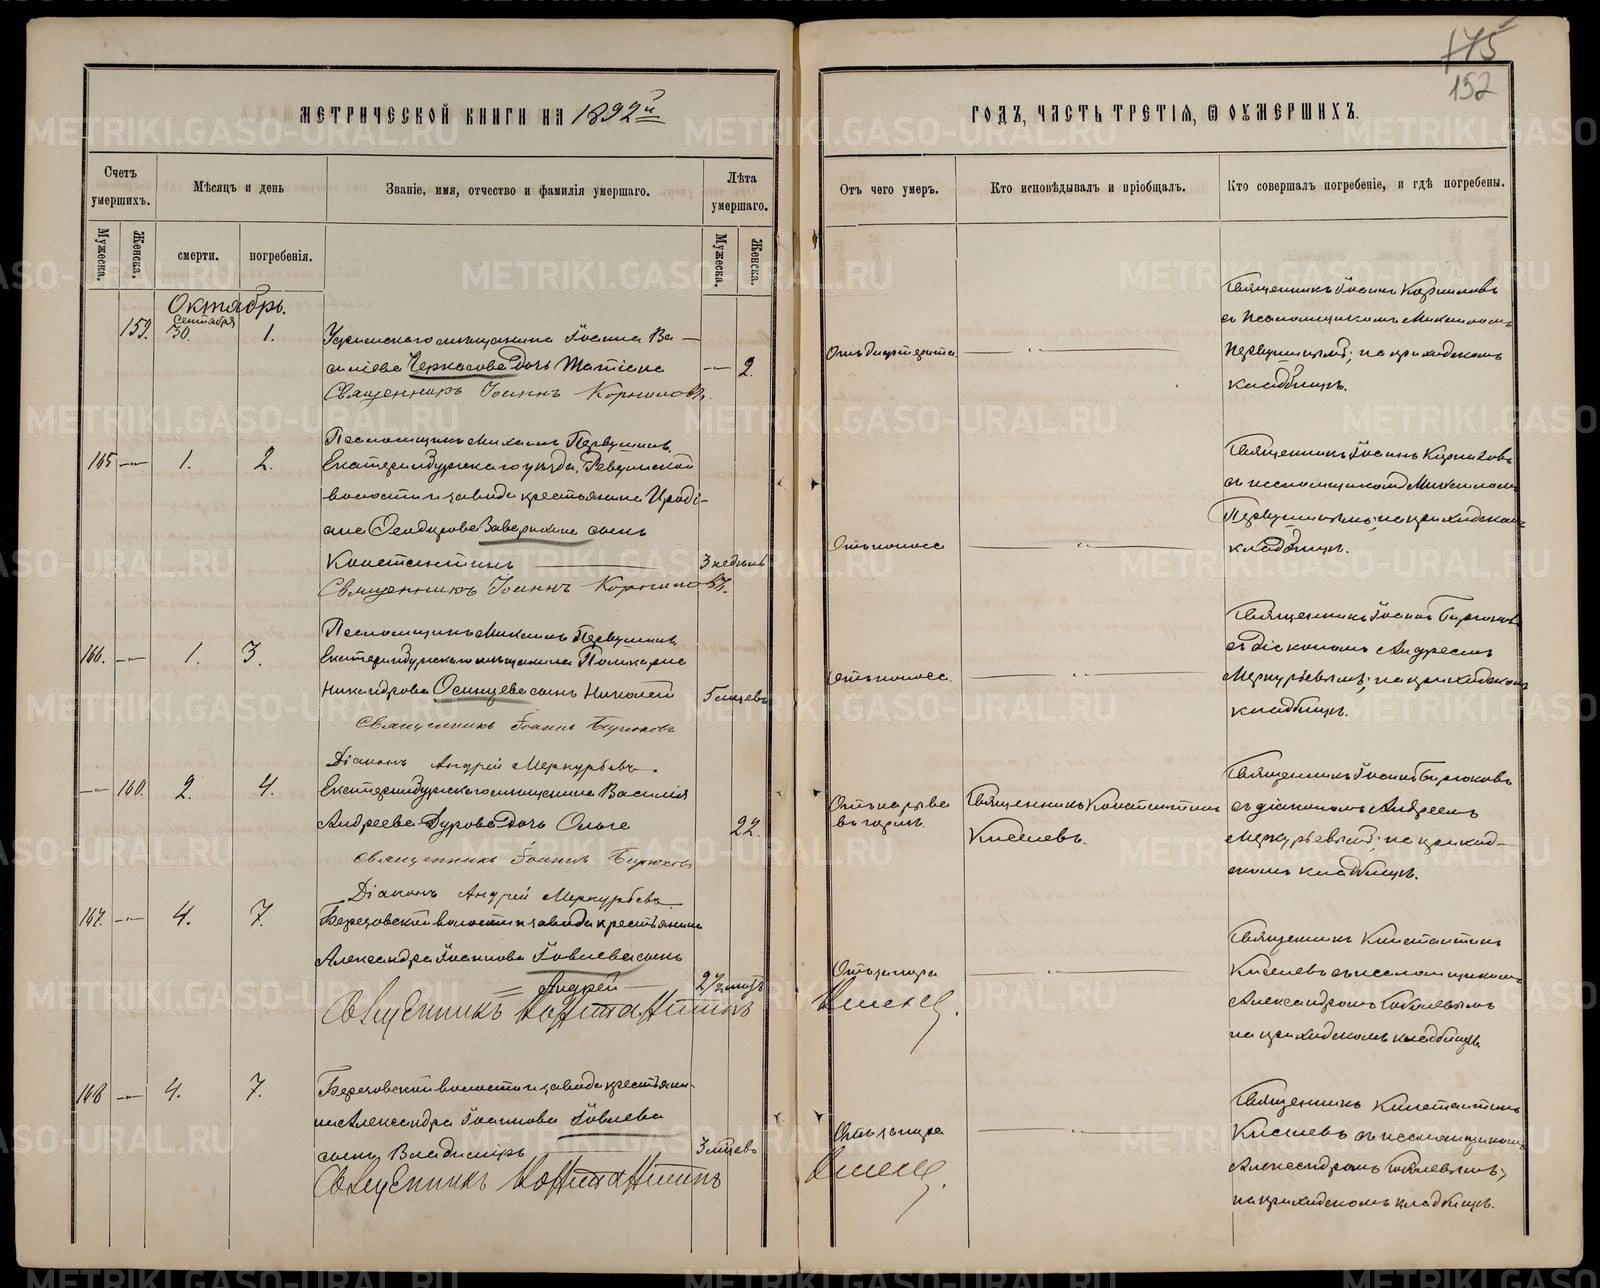 175
152
МЕТРИЧЕСКОЙ КНИГИ НА 1892й
ГОДЪ, ЧАСТЬ ТРЕТІЯ, Ѿ ОУМЕРШИХЪ.
Счетъ умершихъ.
Мѣсяцъ и день
Званіе, имя, отчество и фамилія умершаго.
Лѣта умершаго.
Отъ чего умеръ.
Кто исповѣдывалъ и пріобщалъ.
Кто совершалъ погребеніе, и гдѣ погребены.
Мужеска.
Женска.
смерти.
погребенія.
Мужеска.
Женска.
Октябрь.
Сентября
159. 30. 1.
мѣщанина Іоанна Ва-
силіева Черкасова дочь Татіана 2.
Священникъ Іоаннъ Корниловъ.
Отъ дифтерита
Священникъ Іоаннъ Корниловъ
съ псаломщикомъ Михаиломъ
Первушинымъ; на приходскомъ
кладбищѣ.
Псаломщикъ Михаилъ Первушинъ
165 1. 2.
Екатеринбургскаго уѣзда, Ревдинской
волости и завода крестьянина Иродi-
она Ѳеодорова Заверткина сынъ
Константинъ 3 недѣль
Священникъ Іоаннъ Корниловъ.
Отъ поноса
Священникъ Іоаннъ Корниловъ
съ псаломщикомъ Михаиломъ
Первушинымъ; на приходскомъ
кладбищѣ.
Псаломщикъ Михаилъ Первушинъ
166. 1. 3.
Екатеринбургскаго мѣщанина Поликарпа
Никандрова Осинцева сынъ Николай 5 мѣсцевъ
Священникъ Іоаннъ Бирюковъ
Діаконъ Андрей Меркурьевъ.
Отъ поноса
Священникъ Іоаннъ Бирюковъ
съ діакономъ Андреемъ
Меркурьевымъ; на приходскомъ
кладбищѣ.
160. 2. 4.
Екатеринбургскаго мѣщанина Василія
Андреева Дурова дочь Ольга 22.
Священникъ Іоаннъ Бирюковъ
Діаконъ Андрей Меркурьевъ
Отъ нарыва
въ горлѣ.
Священникъ Константинъ
Киселевъ.
Священникъ Іоаннъ Бирюковъ
съ діакономъ Андреемъ
Меркурьевымъ; на приход-
скомъ кладбищѣ.
167. 4. 7.
Березовской волости и завода крестьянина
Александра Іоаннова Іовлева сынъ
Андрей 2 1/2 мѣсц
Священникъ Константинъ Киселевъ.
Отъ запора
Священникъ Константинъ
Киселевъ съ псаломщикомъ
Александромъ
на приходскомъ кладбищѣ.
168 4. 7.
Березовской волости и завода крестьяни-
на Александра Іоаннова Іовлева
сынъ Владиміръ 3 мѣсцевъ
Священникъ Константинъ Киселевъ.
Отъ запора
Священникъ Константинъ
Киселевъ съ псаломщикомъ
Александромъ
на приходскомъ кладбищѣ.
METRIKI.GASO-URAL.RU